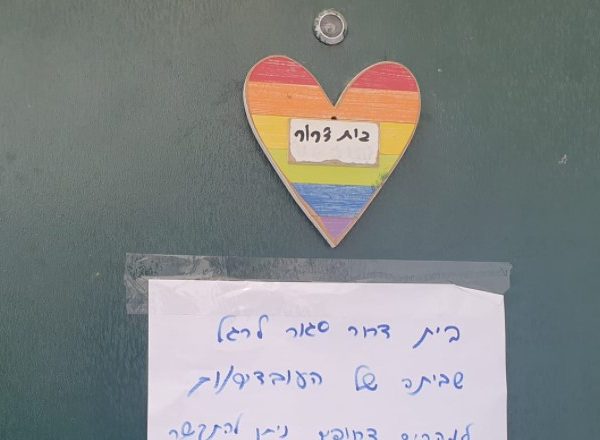 בית דרור
בית דרור סגור לרגל
שביתה של העובדים/ות
למקרים דחופים ניתן להתקשר